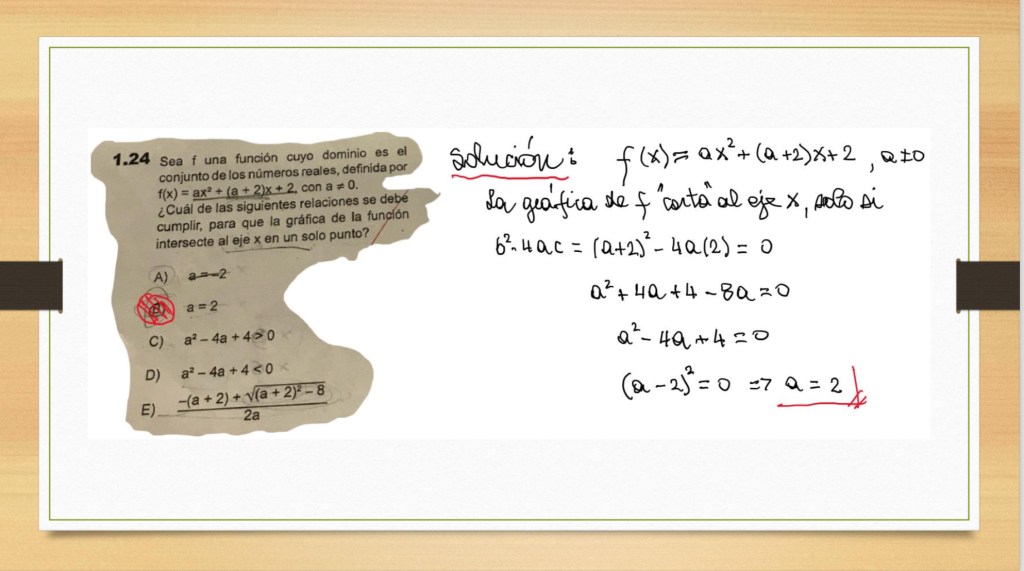 1.24 Sea f una función cuyo dominio es el
conjunto de los números reales, definida por
f(x) = ax² + (a + 2)x + 2, con a ≠ 0.
¿Cuál de las siguientes relaciones se debe
cumplir, para que la gráfica de la función
intersecte al eje x en un solo punto?
A) a = –2
B) a = 2
C) a² – 4a + 4 > 0
D) a² – 4a + 4 < 0
E) –(a + 2) + √(a + 2)² – 8
2a
Solución: f(x) = ax² + (a+2)x + 2, a ≠ 0
La gráfica de f "corta" al eje x, solo si
b² - 4ac = (a+2)² - 4a(2) = 0
a² + 4a + 4 - 8a = 0
a² - 4a + 4 = 0
(a - 2)² = 0 => a = 2